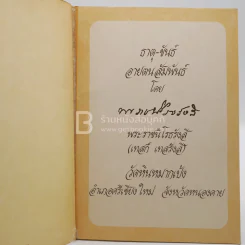 ธาตุ-ขันธ์
อายตนสัมพันธ์
โดย
พระราชนิโรธรังสี
(เทสก์ เทสรังสี)
วัดหินหมากเป้ง
อำเภอศรีเชียงใหม่ จังหวัดหนองคาย